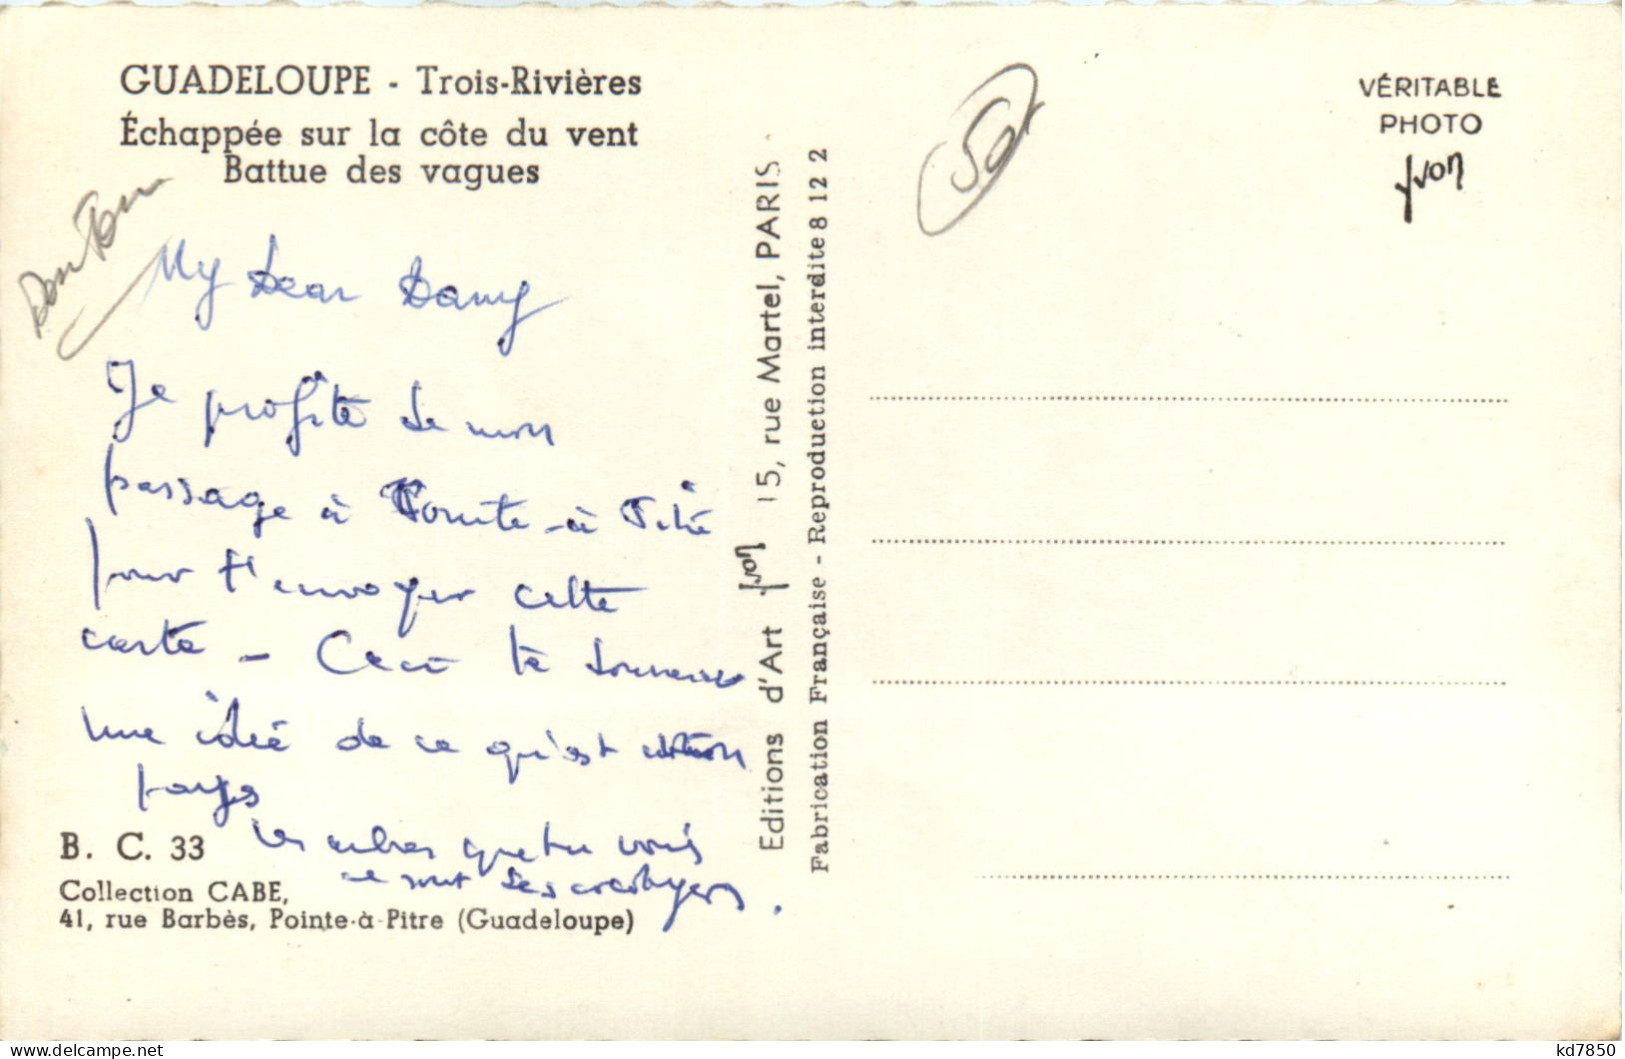 GUADELOUPE - Trois-Rivières
Échappée sur la côte du vent
Battue des vagues
My Dear Dany
Je profite de mon
passage à Pointe-à-Pitre
pour t'envoyer cette
carte - Ceci te donnera
une idée de ce qu'est mon
pays
Les arbres que tu vois
ce sont des cocotiers.
B. C. 33
Collection CABE,
41, rue Barbès, Pointe-à-Pitre (Guadeloupe)
Editions d'Art Yvon 15, rue Martel, PARIS
Fabrication Française - Reproduction interdite 8 12 2
VÉRITABLE
PHOTO
Yvon
kd7850